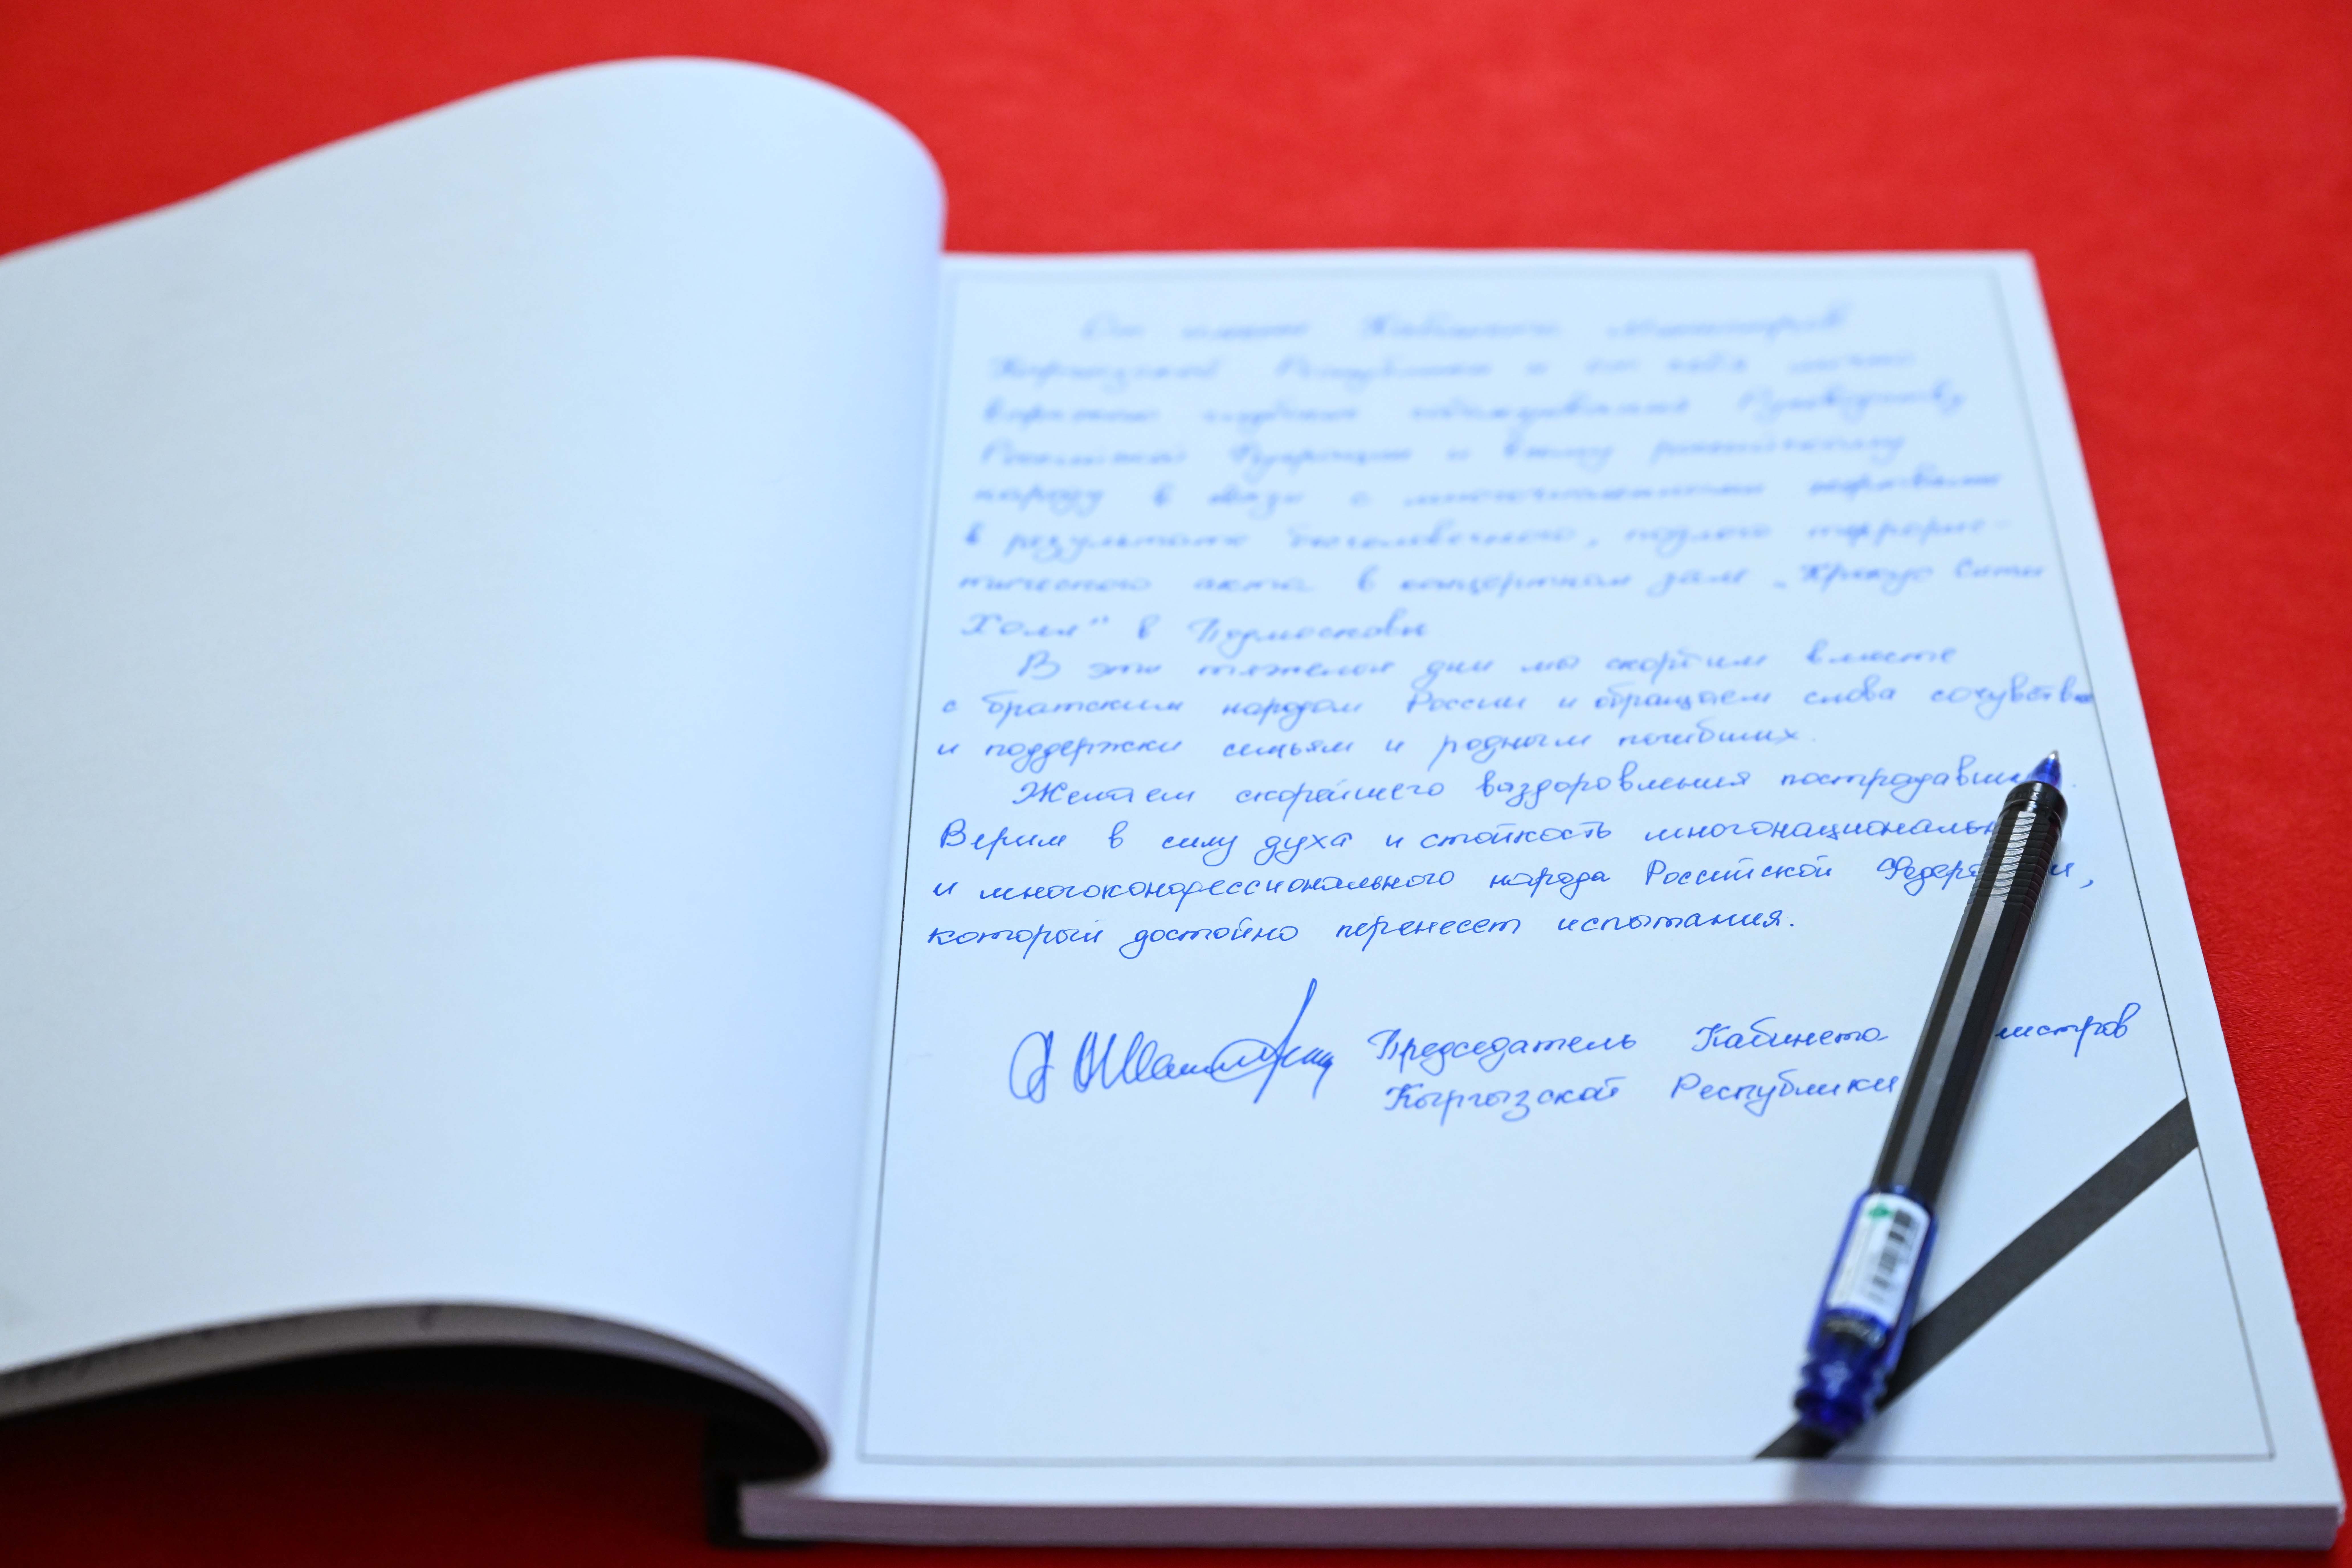 От имени Кабинета Министров
Кыргызской Республики и от себя лично
выражаю глубокие соболезнования Руководству
Российской Федерации и всему российскому
народу в связи с многочисленными жертвами
в результате бесчеловечного, подлого террорис-
тического акта в концертном зале „Крокус Сити
Холл" в Подмосковье
В эти тяжелые дни мы скорбим вместе
с братским народом России и обращаем слова сочувствия
и поддержки семьям и родным погибших.
Желаем скорейшего выздоровления пострадавшим.
Верим в силу духа и стойкость
и многоконфессионального народа Российской
который достойно перенесет испытания.
Председатель Кабинета
Кыргызской Республики